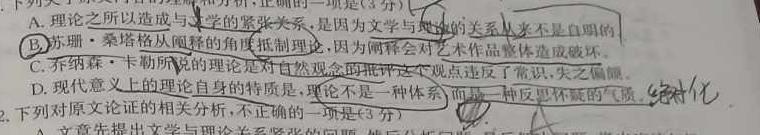 下列关于原文内容的理解和分析,正确的一项是(3分)
A. 理论之所以造成与文学的紧张关系,是因为文学与理论的关系从来不是自明的
B. 苏珊·桑塔格从阐释的角度抵制理论,因为阐释会对艺术作品整体造成破坏。
C. 乔纳森·卡勒所说的理论是对自然观念的批评这个观点违反了常识,失之偏颇。
D. 现代意义上的理论自身的特质是,理论不是一种体系,而是一种反思怀疑的气质。绝对化
2. 下列对原文论证的相关分析,不正确的一项是(3分)
A. 文章先提出文学与理论关系紧张的问题,